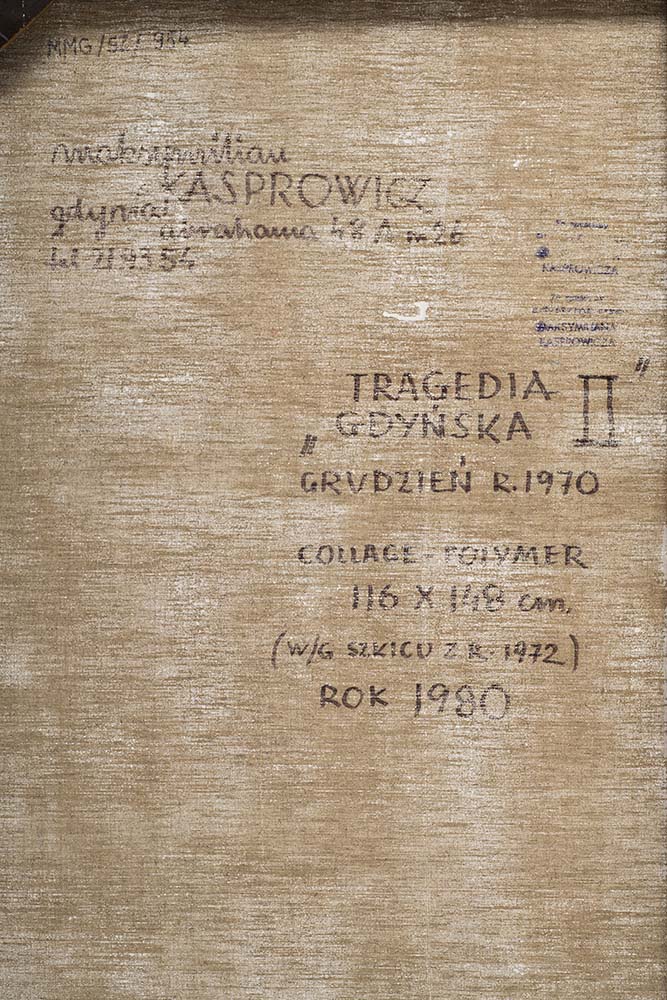 MMG/SZ/954
maksymilian
KASPROWICZ
gdynia
abrahama 48 A m 26
tel 219354
KASPROWICZA
MAKSYMILIANA
KASPROWICZA
TRAGEDIA II"
„GDYŃSKA
GRUDZIEŃ R. 1970
COLLAGE-POLYMER
116 X 148 cm.
(W/G SZKICU Z R. 1972)
ROK 1980